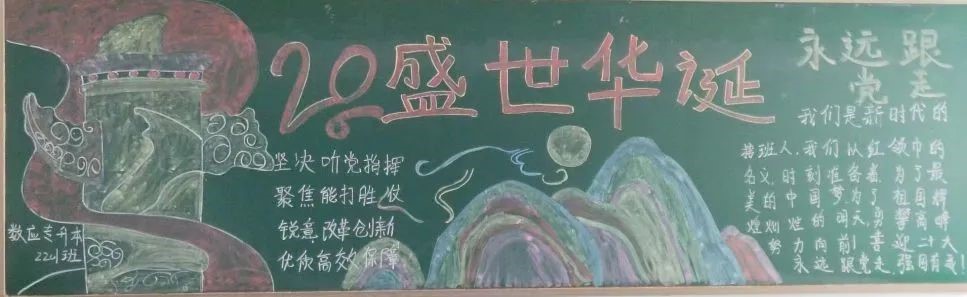 20盛世华诞
永远跟
党走
坚决听党指挥
聚焦能打胜仗
锐意改革创新
优质高效保障
我们是新时代的
接班人,我们以红领巾的
名义,时刻准备着,为了最
美的中国梦,为了祖国辉
煌灿烂的明天,勇攀高峰
努力向前!喜迎二十大
永远跟党走,强国有我!
数应专升本
2241班